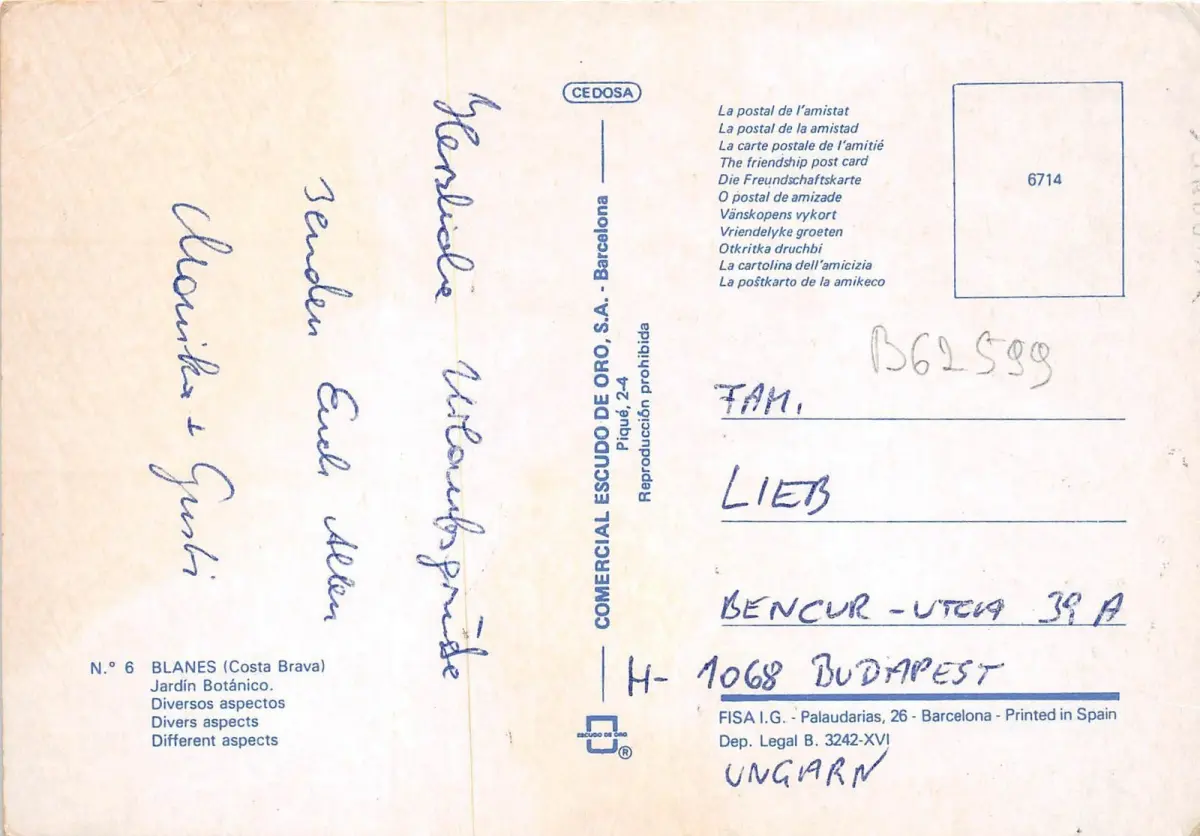 Herzliche Urlaubsgrüße
senden Euch Allen
Monika + Gusti
N.° 6 BLANES (Costa Brava)
Jardín Botánico.
Diversos aspectos
Divers aspects
Different aspects
CEDOSA
COMERCIAL ESCUDO DE ORO, S.A. - Barcelona
Piqué, 2-4
Reproducción prohibida
ESCUDO DE ORO
®
La postal de l'amistat
La postal de la amistad
La carte postale de l'amitié
The friendship post card
Die Freundschaftskarte
O postal de amizade
Vänskopens vykort
Vriendelyke groeten
Otkritka druchbi
La cartolina dell'amicizia
La poŝtkarto de la amikeco
6714
B62599
FAM.
LIEB
BENCUR - UTCA 39 A
H- 1068 BUDAPEST
FISA I.G. - Palaudarias, 26 - Barcelona - Printed in Spain
Dep. Legal B. 3242-XVI
UNGARN